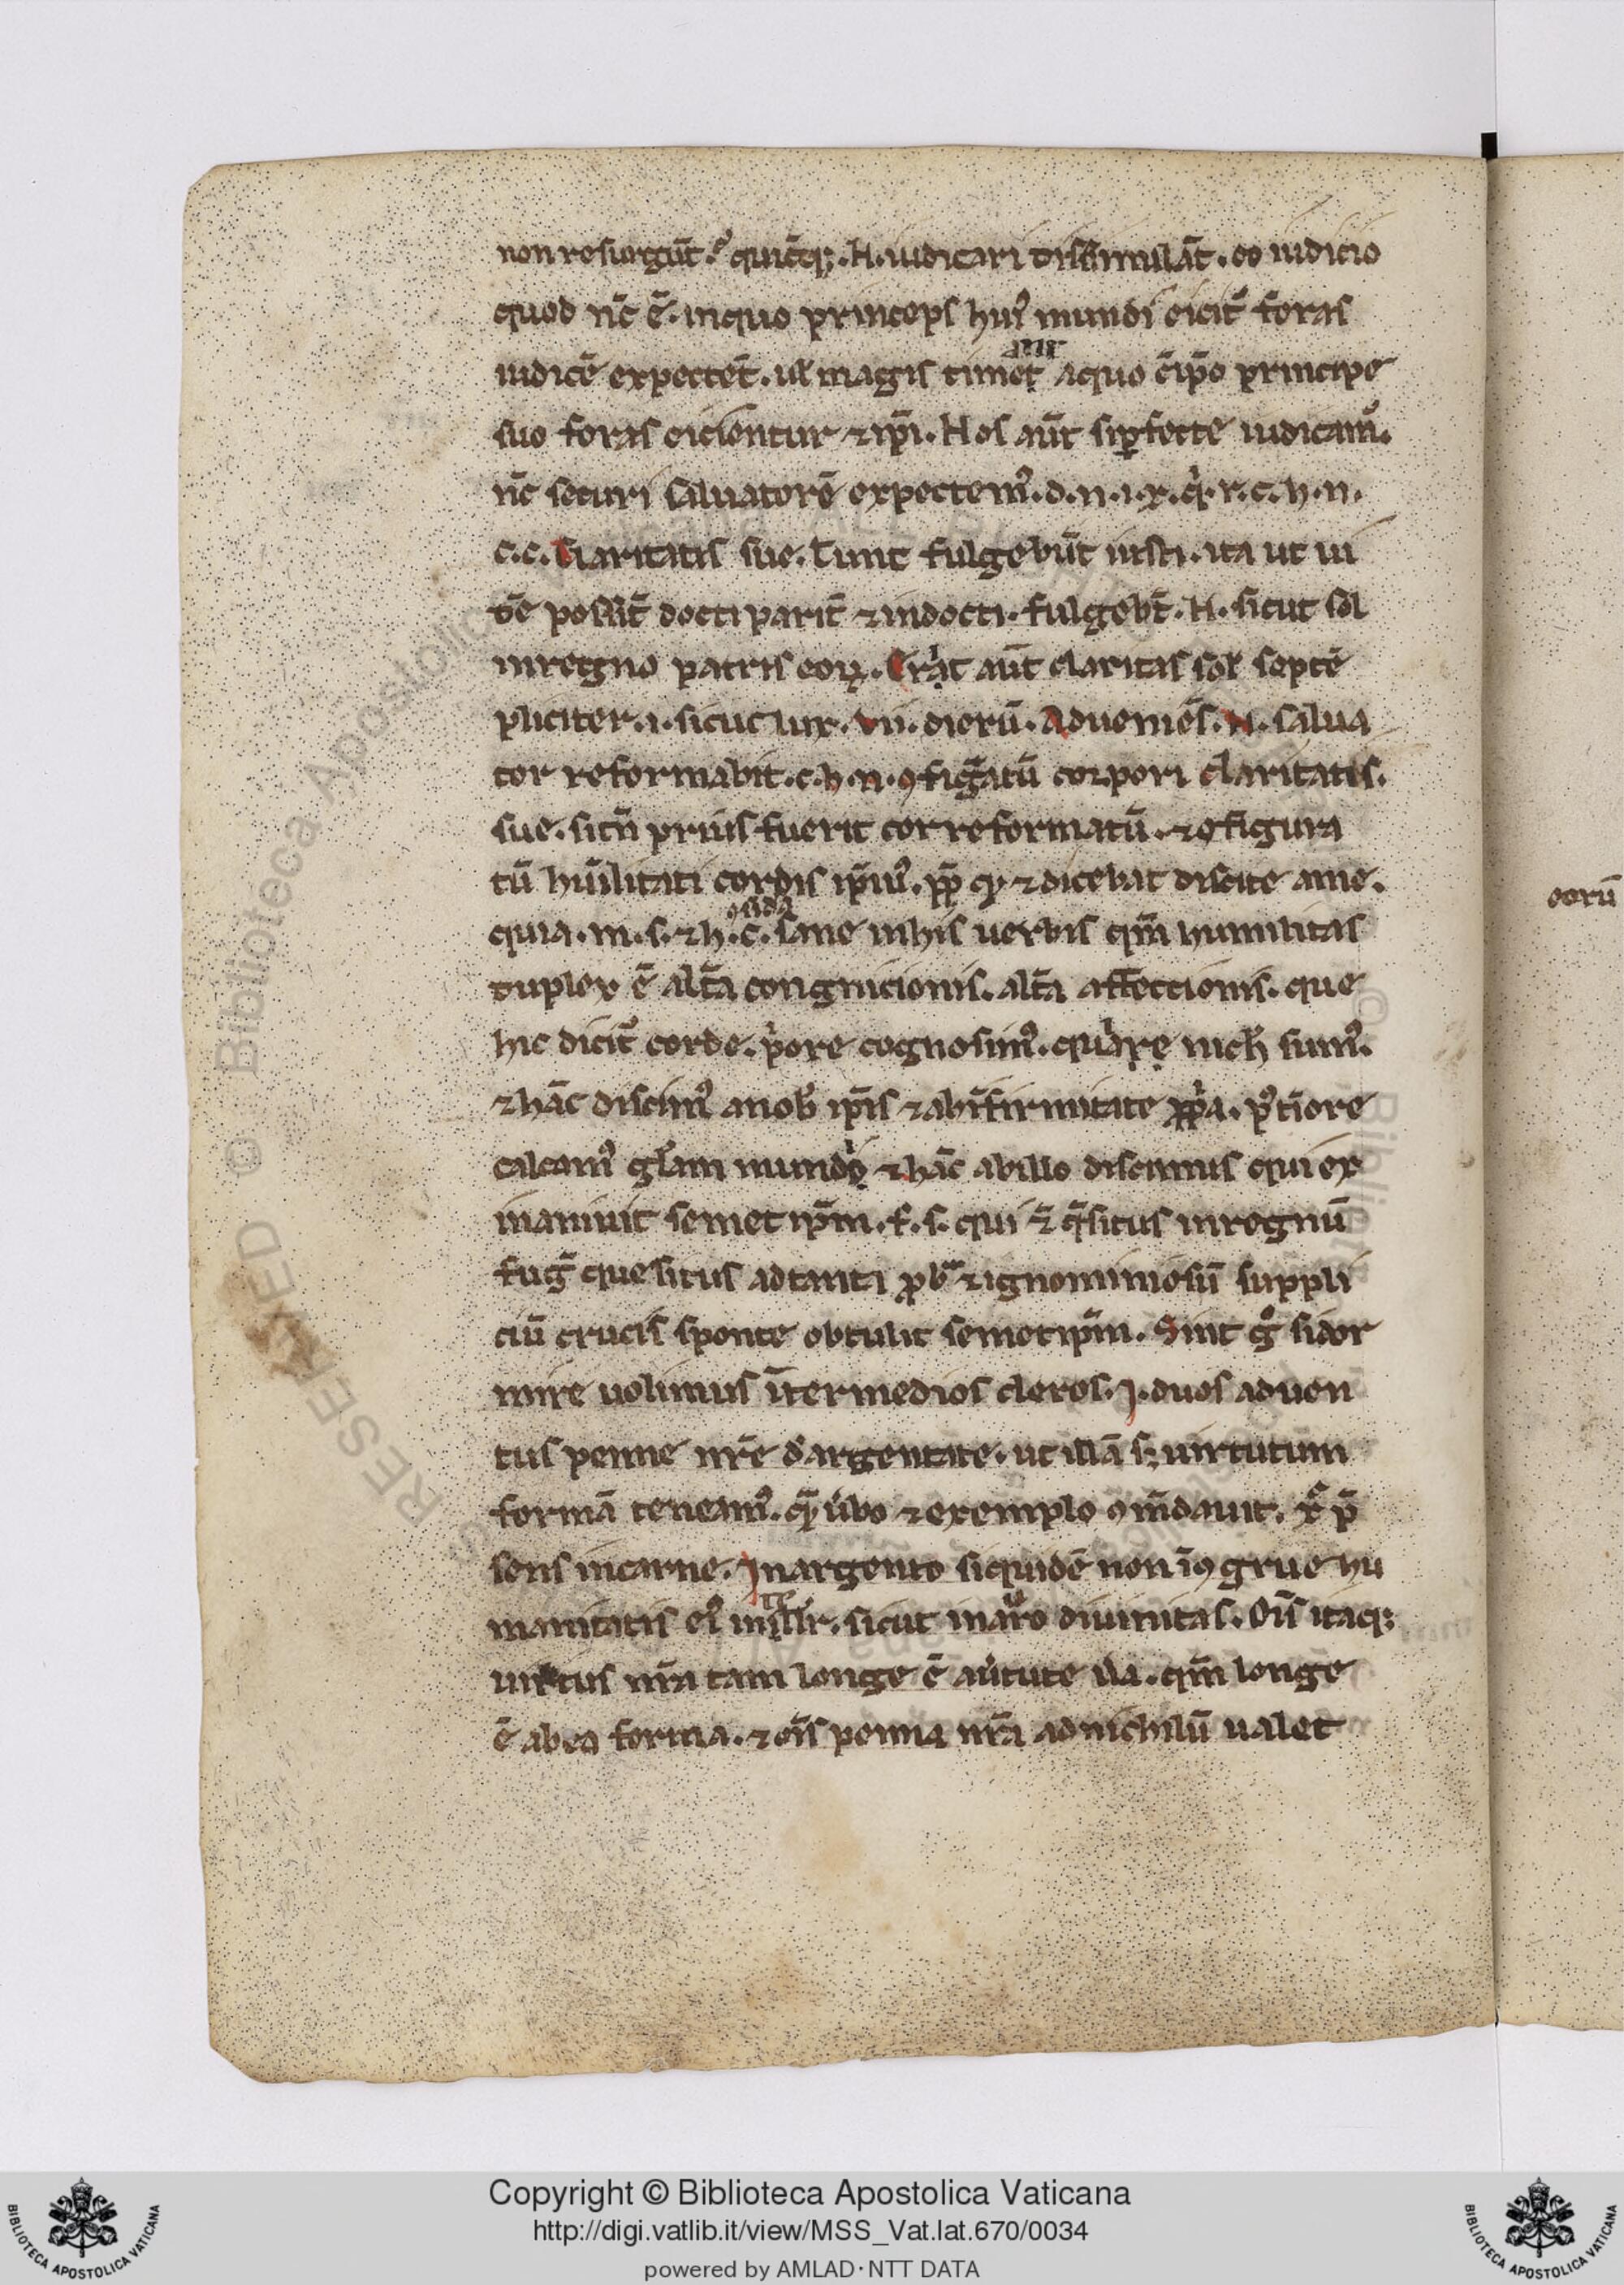 non resurgūt. quicūq;. N. iudicari dissimulāt. eo iudicio
quod nc̄ ē. inquo princeps hui᷒ mundi eicit᷒ foras
iudicē expectēt. ul magis timēt aꝫquo cū ip̄o principe
suo foras eicientur ⁊ip̄i. Nos aūt siꝑfecte iudicam᷒.
nc̄ securi saluatorē expectem᷒. d. n. i. x. q. r. c. h. n.
c. c. claritatis sue. Tunc fulgebūt iusti. ita ut ui
dē possūt docti parit̄ ⁊indocti. fulgebt̄. N. sicut sol
inregno patris eoꝝ. Erit aūt claritas sol septē
pliciter. i. sicut lux. vii. dierū. Adueniēs. N. salua
tor reformabit. c. h. n. ꝯfiḡatū corpori claritatis.
sue. si tn̄ prius fuerit cor reformatū. ⁊ꝯfigura
tū hūilitati cordis ip̄iu᷒. ꝓp̄ qđ ⁊dicebat discite ame.
quia. m. s. ⁊h. c. sane inhis uerbis qm̄ humilitas
duplex ē alt̄a congnicionis. alt̄a affectionis. que
hic dicit᷒ corde. p̓ore cognosim᷒. quare nich̄ sum᷒.
⁊hāc discim᷒ anob̄ ip̄is ⁊abīfirmitate ꝓp̓a. post̄iore
calcam᷒ gl̄am mundi ⁊hāc abillo discimus qui ex
inaniuit semet ip̄m. f. s. qui ⁊ q̄situs inregnū
fuḡ quesitus adtanta ꝓba ⁊ignominiosū suppli
ciū crucis sponte obtulit semetip̄m. Sint g᷒ sidor
mire uolimus īter medios cleros. I. duos aduen
tus penne nr̄e d̄argentate. ut illā sꝫ uirtutum
formā teneam᷒. quā ūbo ⁊exemplo ꝯm̄dauit. xp̄ p̄
sens incarne. Inargento siquidē non īꝯgrue hu
manitatis ei᷒ intllr̄. sicut inauro diuinitas. Oīs itaq;
uirtus nr̄a tam longe ē auirtute illa. qm̄ longe
ē abea forma. ⁊oīs penna nr̄a adnichilū ualet
eorū
Copyright © Biblioteca Apostolica Vaticana
http://digi.vatlib.it/view/MSS_Vat.lat.670/0034
powered by AMLAD·NTT DATA
BIBLIOTECA APOSTOLICA VATICANA
BIBLIOTECA APOSTOLICA VATICANA